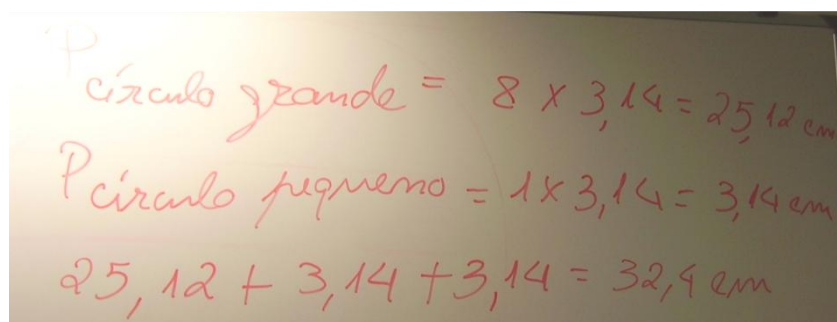 P círculo grande = 8 x 3,14 = 25,12 cm
P círculo pequeno = 1x3,14 = 3,14 cm
25,12 + 3,14 + 3,14 = 32,4 cm